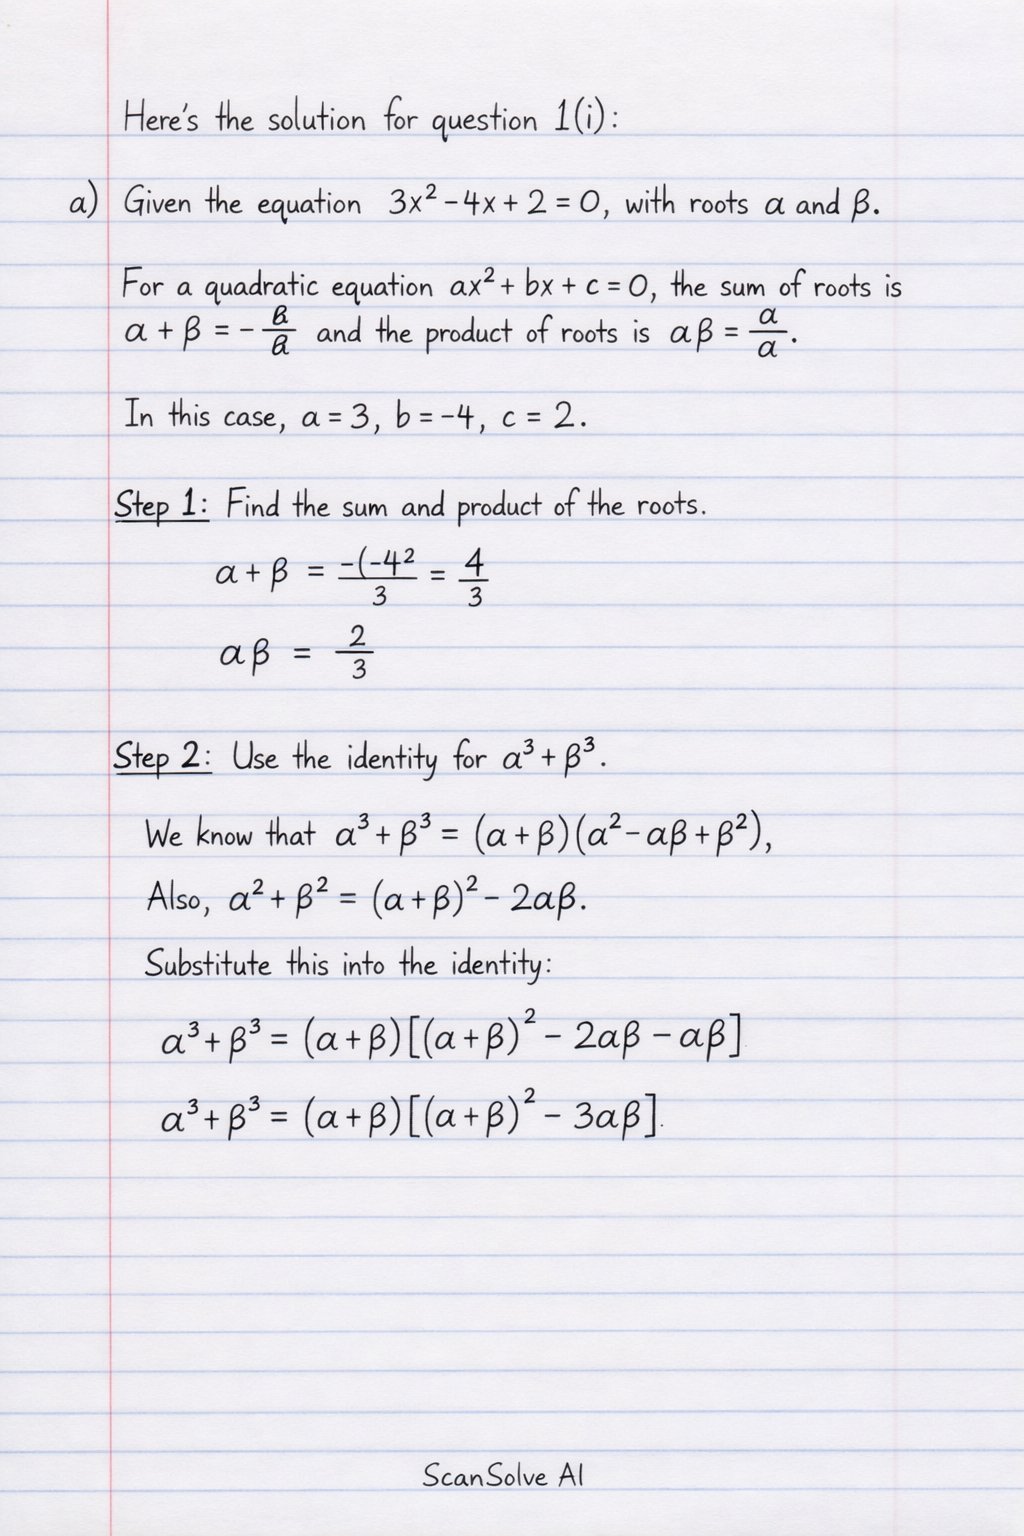 Here's the solution for question 1(i):
a) Given the equation 3x² - 4x + 2 = 0, with roots α and β.
For a quadratic equation ax² + bx + c = 0, the sum of roots is
α + β = - β/a and the product of roots is αβ = α/a.
In this case, a = 3, b = -4, c = 2.
Step 1: Find the sum and product of the roots.
α + β = -(-4²/3 = 4/3
αβ = 2/3
Step 2: Use the identity for α³ + β³.
We know that α³ + β³ = (α + β)(α² - αβ + β²),
Also, α² + β² = (α + β)² - 2αβ.
Substitute this into the identity:
α³ + β³ = (α + β)[(α + β)² - 2αβ - αβ]
α³ + β³ = (α + β)[(α + β)² - 3αβ].
ScanSolve AI